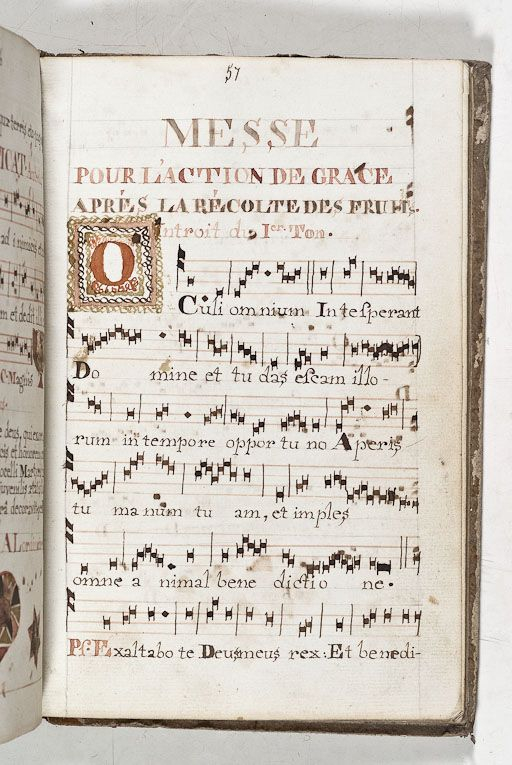 57
MESSE
POUR L'ACTION DE GRACE
APRÉS LA RÉCOLTE DES FRUITS.
Introit du Ier. Ton.
OCuli omnium In te sperant
Domine et tu das escam illo-
rum in tempore opportuno Aperis
tu manum tuam, et imples
omne animal benedictione.
Ps. Exaltabo te Deus meus rex: Et benedi-